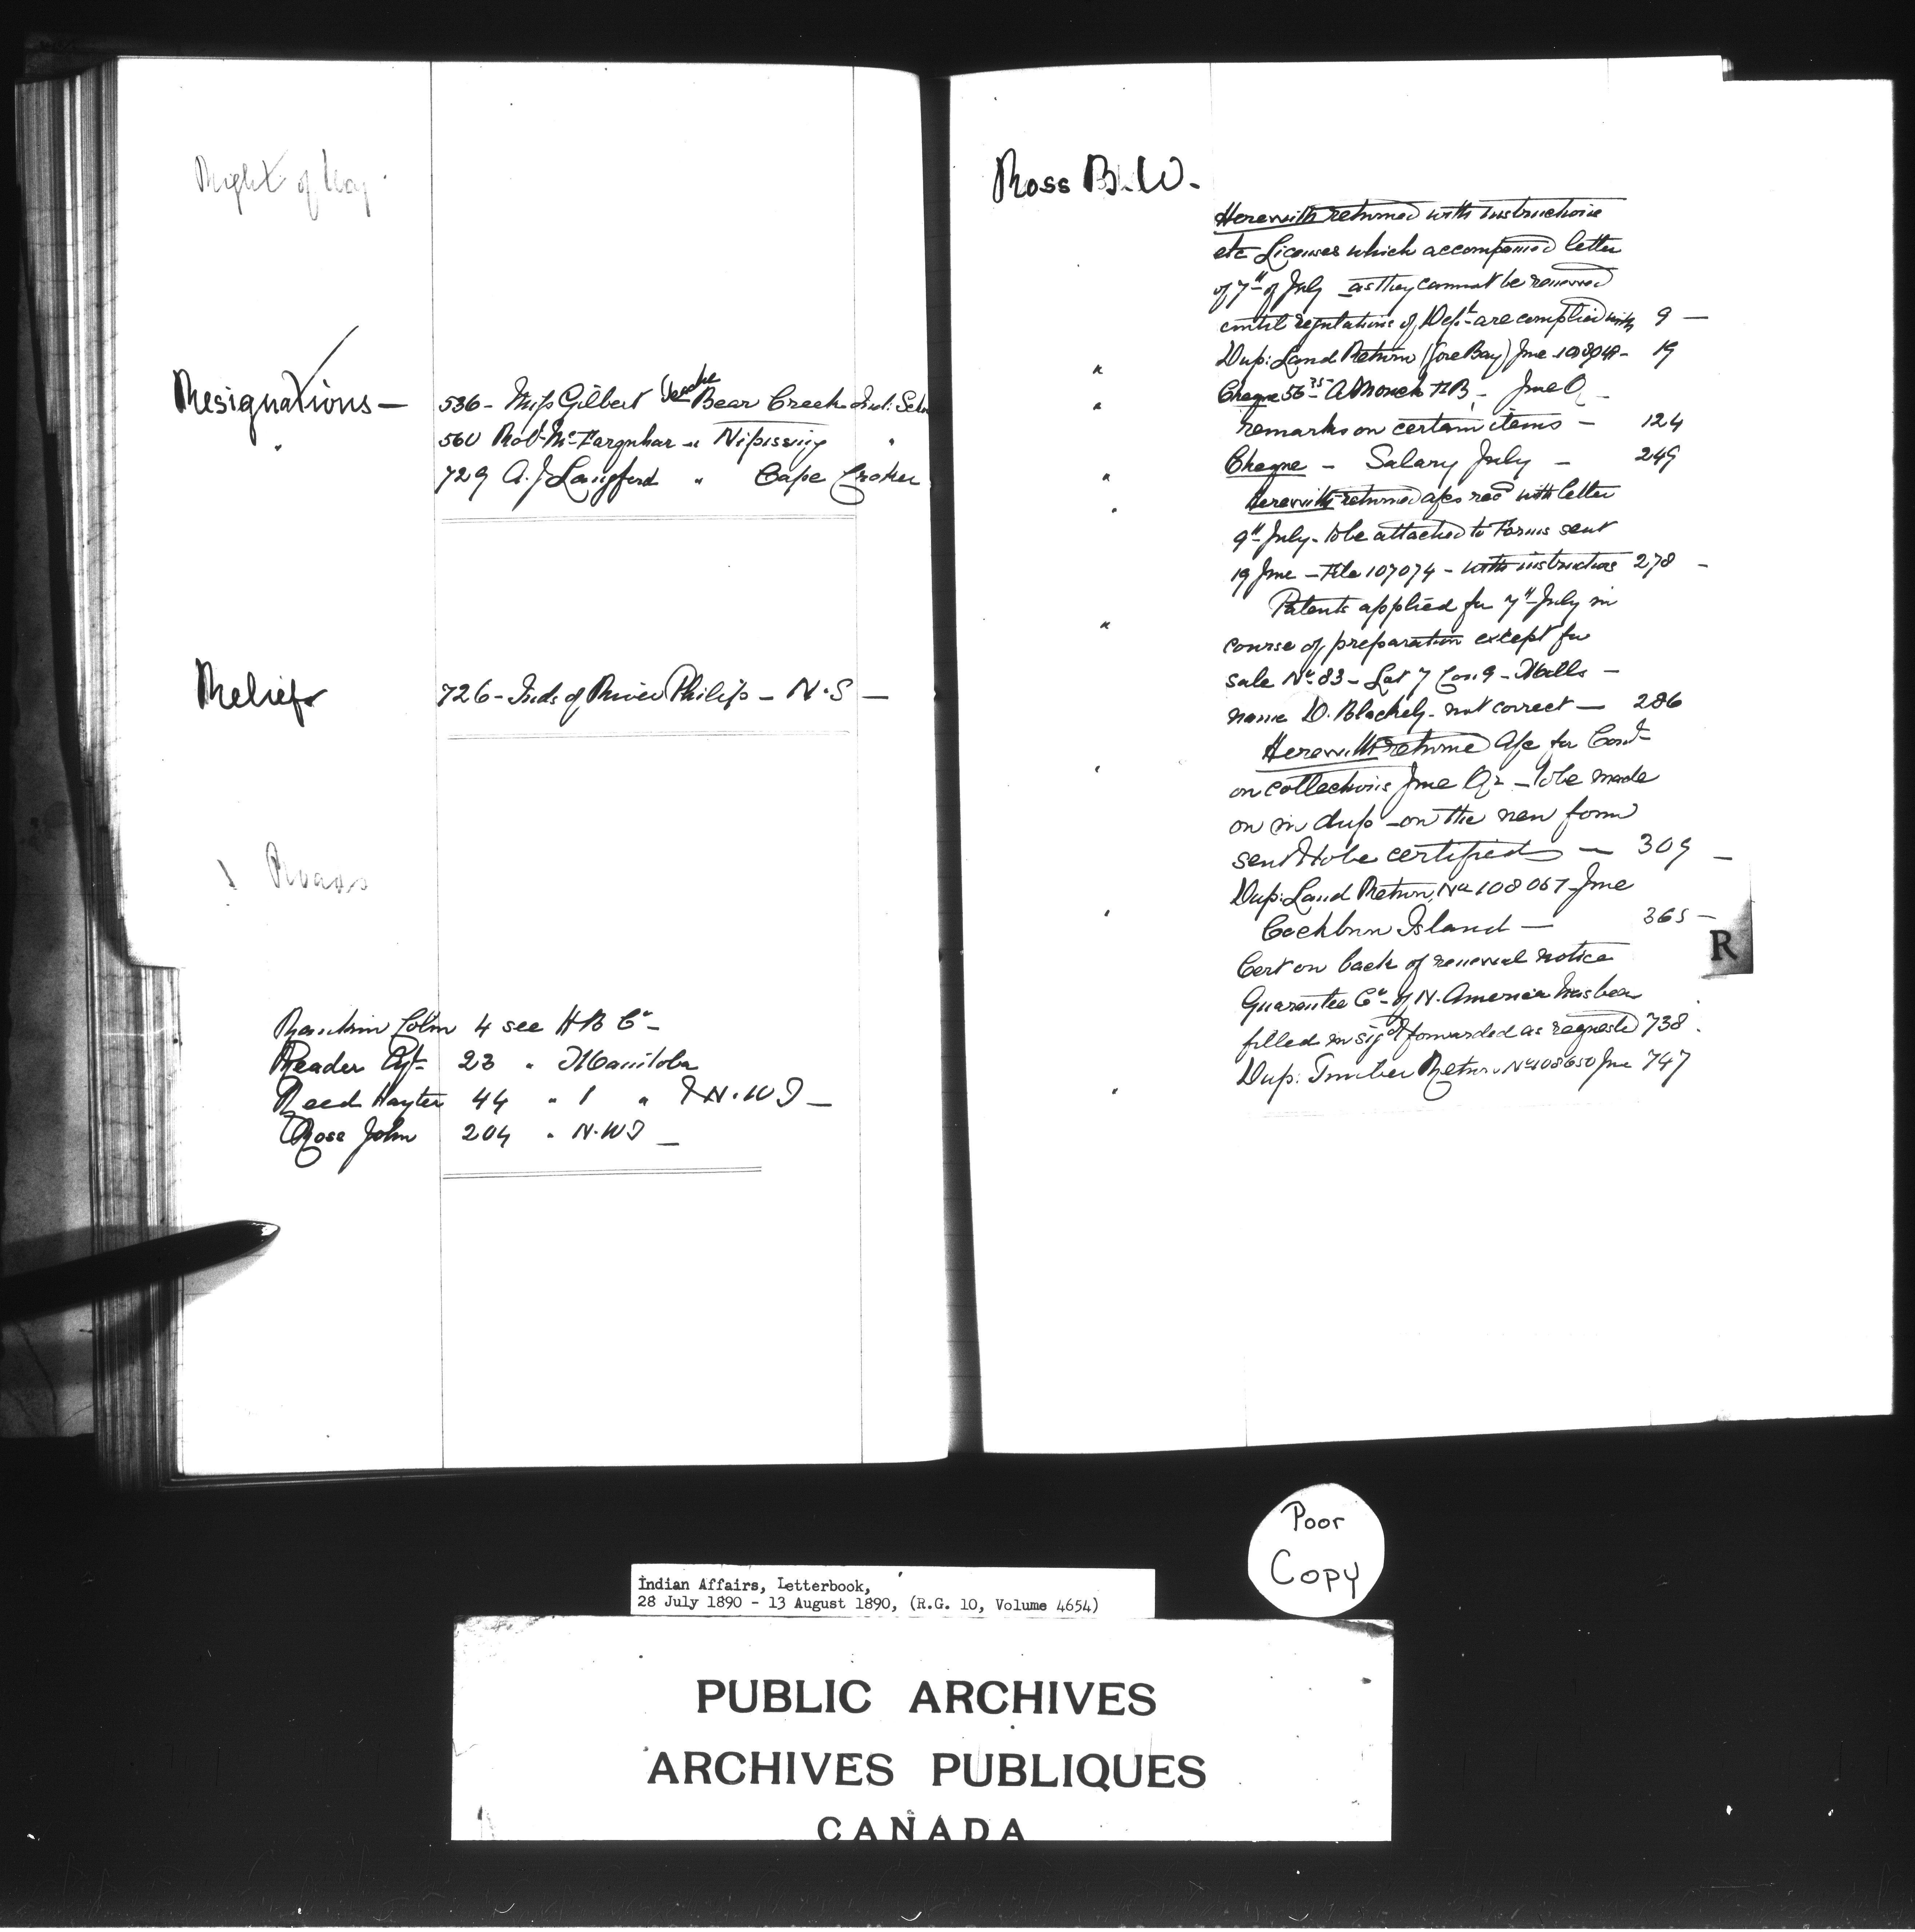 Right of Way
Resignations — 536 - Miss Gilbert Teacher Bear Creek Ind: Sch
" 560 Robt McFarquhar " Nipissing "
729 A. J. Langford " Cape Croker
Relief 726 - Inds of River Philip - N.S —
Roads
Rankin Colin 4 see H B Co -
Reader Agt 23 " Manitoba
Reed Hayter 44 " " & N.W T —
Ross John 204 " N.W T —
Ross B. W.
Herewith returned with instructions
etc Licenses which accompanied letter
of 7th of July as they cannot be renewed
until regulations of Dept are complied with 9 —
" Dup: Land Return (Gore Bay) June 108948 - 19
" Cheque 56 75 - June Q -
remarks on certain items - 124
" Cheque - Salary July - 249
" Herewith returned a/cs recd with letter
9th July - to be attached to Forms sent
19 June - File 107074 - with instructions 278 -
" Patents applied for 7th July in
course of preparation except for
sale No 83 - Lot 7 Con 9 - Mills -
name D. Blackely - not correct — 286
" Herewith returned A/c for Comn
on collections June Qr - to be made
on in dup - on the new form
sent & to be certified — 309 —
" Dup: Land Return, No 108067 June
Cockburn Island — 365 -
Cert on back of renewal notice
Guarantee Co of N. America has been
filled in sigd & forwarded as requested 738 .
" Dup: Timber Return No 108650 June 747
R
Poor
Copy
Indian Affairs, Letterbook,
28 July 1890 - 13 August 1890, (R.G. 10, Volume 4654)
PUBLIC ARCHIVES
ARCHIVES PUBLIQUES
CANADA